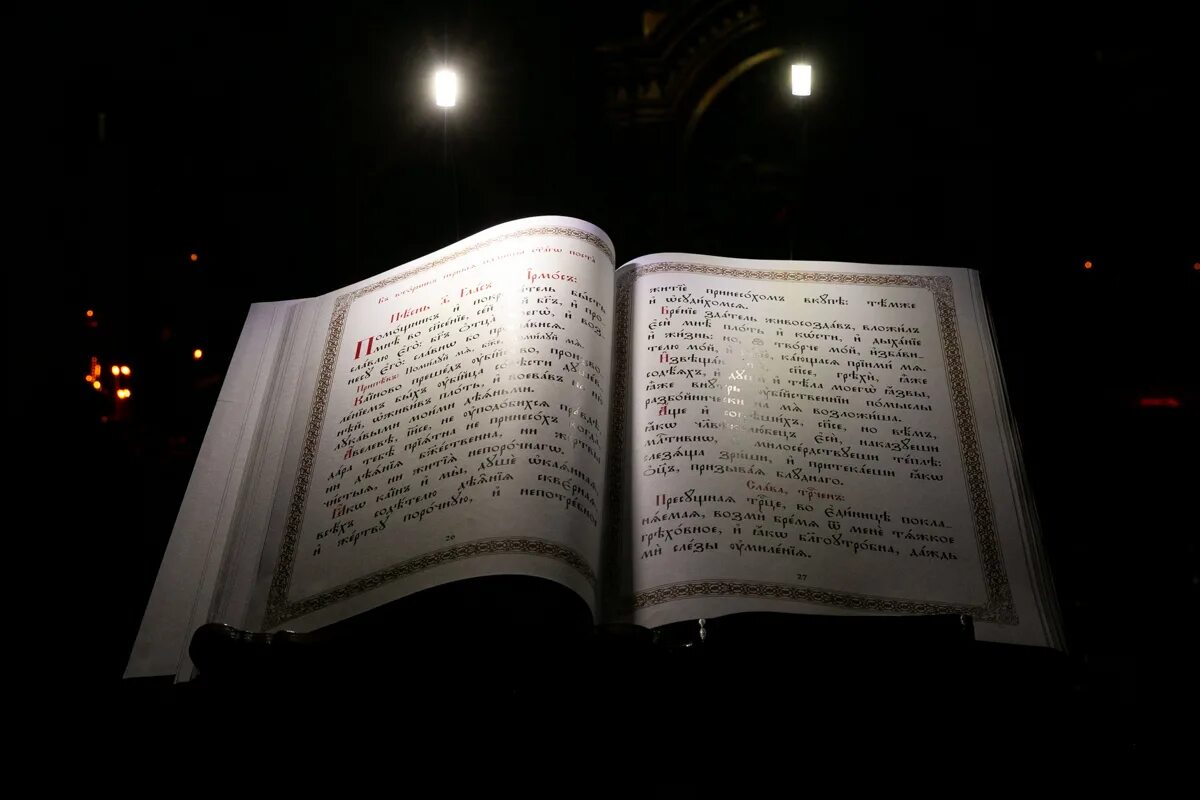 Въ вто́рникъ пе́рвыѧ седми́цы ст҃а́гѡ поста̀
Пѣ́снь а҃. Гла́съ І҆рмо́съ:
Помо́щникъ и҆ покрови́тель бы́сть
мнѣ̀ во сп҃се́нїе, се́й бг҃ъ, и҆ про-
сла́влю є҆го̀: бг҃ъ ѻ҆ц҃а̀ моегѡ̀, и҆ воз-
несꙋ̀ є҆го̀: сла́внѡ бо просла́висѧ.
Припѣ́въ: Поми́лꙋй мѧ̀, бж҃е, поми́лꙋй мѧ̀.
Ка́иново преше́дъ ᲂу҆бі́йство, произво-
ле́нїемъ бы́хъ ᲂу҆бі́йца со́вѣсти дꙋше́в-
нѣй, ѡ҆живи́въ пло́ть, и҆ воева́въ на
лꙋка́выми мои́ми дѣѧ́ньми.
А҆́велевѣ, і҆и҃се, не ᲂу҆подо́бихсѧ пра́вдѣ,
да́ра тебѣ̀ прїѧ́тна не принесо́хъ когда̀,
ни дѣѧ̑нїѧ бж҃е́ственна, ни же́ртвы
чи́стыѧ, ни житїѧ̀ непоро́чнагѡ.
Ꙗ҆́кѡ ка́инъ и҆ мы̀, дꙋшѐ ѡ҆каѧ́ннаѧ,
всѣ́хъ содѣ́телю дѣѧ̑нїѧ скве́рнаѧ,
и҆ же́ртвꙋ поро́чнꙋю, и҆ непотре́бное
26
житїѐ принесо́хомъ вкꙋ́пѣ: тѣ́мже
и҆ ѡ҆сꙋди́хомсѧ.
Бре́нїе зда́тель живосозда́въ, вложи́лъ
є҆сѝ мнѣ̀ пло́ть и҆ кѡ́сти, и҆ дыха́нїе
и҆ жи́знь: но, ѽ тво́рче мо́й, и҆зба́ви-
телю мо́й, и҆ ка́ющасѧ прїимѝ мѧ̀.
И҆звѣща́ю сп҃се, грѣхѝ, ꙗ҆̀же
содѣ́ѧхъ, и҆ дꙋшѝ и҆ тѣ́ла моегѡ̀ ꙗ҆́звы,
ꙗ҆̀же внꙋ́трь ᲂу҆бі́йственнїи по́мыслы
разбо́йнически на мѧ̀ возложи́ша.
А҆́ще и҆ согрѣши́хъ, сп҃се, но вѣ́мъ,
ꙗ҆́кѡ чл҃вѣколю́бецъ є҆сѝ, наказꙋ́еши
млⷭ҇тивнѡ, и҆ милосе́рдствꙋеши те́плѣ:
слезѧ́ща зри́ши, и҆ притека́еши ꙗ҆́кѡ
ѻ҆ц҃ъ, призыва́ѧ блꙋ́днаго.
Сла́ва, трⷪ҇ченъ:
Пресꙋ́щнаѧ трⷪ҇це, во є҆ди́ницѣ покла-
нѧ́емаѧ, возмѝ бре́мѧ ѿ менѐ тѧ́жкое
грѣхо́вное, и҆ ꙗ҆́кѡ бл҃гоꙋтро́бна, да́ждь
мѝ сле́зы ᲂу҆миле́нїѧ.
27